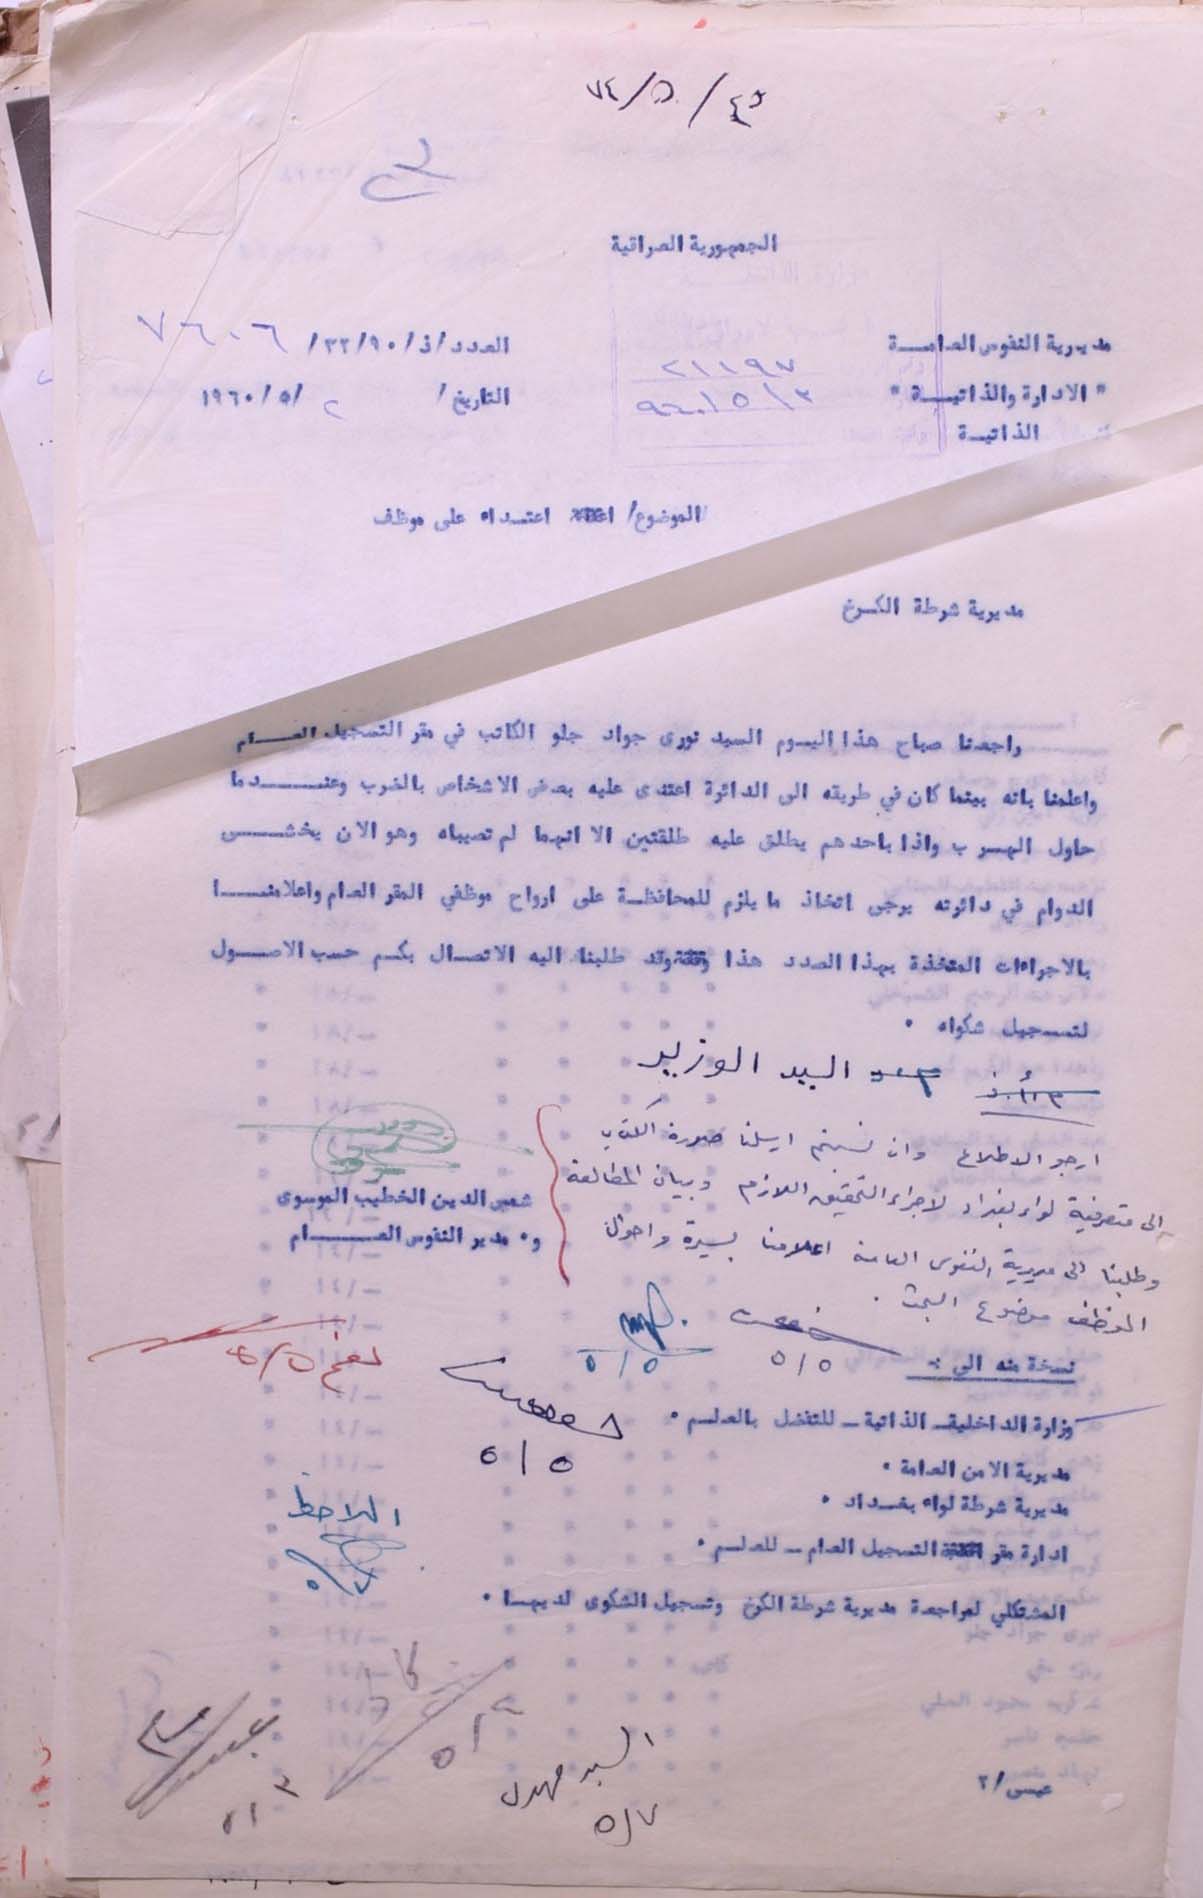 ٧٤/٥/٤٥
الجمهورية العراقية
مديرية النفوس العامــة
العدد/ذ/٢٢/٩٠/ ٧٦٠٦
" الادارة والذاتيــة "
التاريخ/ ٢ /٥/١٩٦٠
الذاتيــة
٢١١٩٧
٩٦٠/٥/٣
الموضوع/ اعتــداء على موظف
مديرية شرطة الكـرخ
راجعنا صباح هذا اليــوم السيد نورى جواد جلو الكاتب في مقر التسجيل العــام
واعلمنا بانه بينما كان في طريقه الى الدائرة اعتدى عليه بعض الاشخاص بالضرب وعنــدما
حاول الهــرب واذا باحدهم يطلق عليه طلقتين الا انهما لم تصيباه وهو الان يخشــى
الدوام في دائرته يرجى اتخاذ ما يلزم للمحافظــة على ارواح موظفي المقر العــام واعلامنــا
بالاجراءات المتخذة بهذا الصدد هذا وقد طلبنا اليه الاتصــال بكــم حسب الاصــول
لتسـجيل شكواه .
السيد الوزير
ارجو الاطلاع وان نسبتم ارسلنا صورة الكتاب
الى متصرفية لواء بغداد لاجراء التحقيق اللازم وبيان المطالعة
وطلبنا الى مديرية النفوس العامة اعلامنا بسيرة واحوال
الموظف موضوع البحث .
شمس الدين الخطيب الموسوى
و. مدير النفوس العــــام
٥/٥
٥/٥
نعم ٥/٥
نسخة منه الى :-
وزارة الداخلية ــ الذاتية ــ للتفضل بالعلــم .
٥/٥
مديرية الامن العــامة .
مديرية شرطة لواء بغــداد .
الملاحظ
ادارة مقر التسجيل العـام ــ للعلــم .
المشتكي لمراجعة مديرية شرطة الكرخ وتسجيل الشكوى لديهــا .
٥/٣
السيد مهدي
٥/٧
عبــس/٢